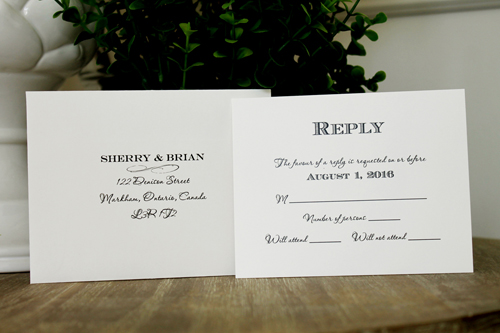 SHERRY & BRIAN
122 Denison Street
Markham, Ontario, Canada
L3R 1T2
REPLY
The favour of a reply is requested on or before
AUGUST 1, 2016
M
Number of persons
Will attend Will not attend